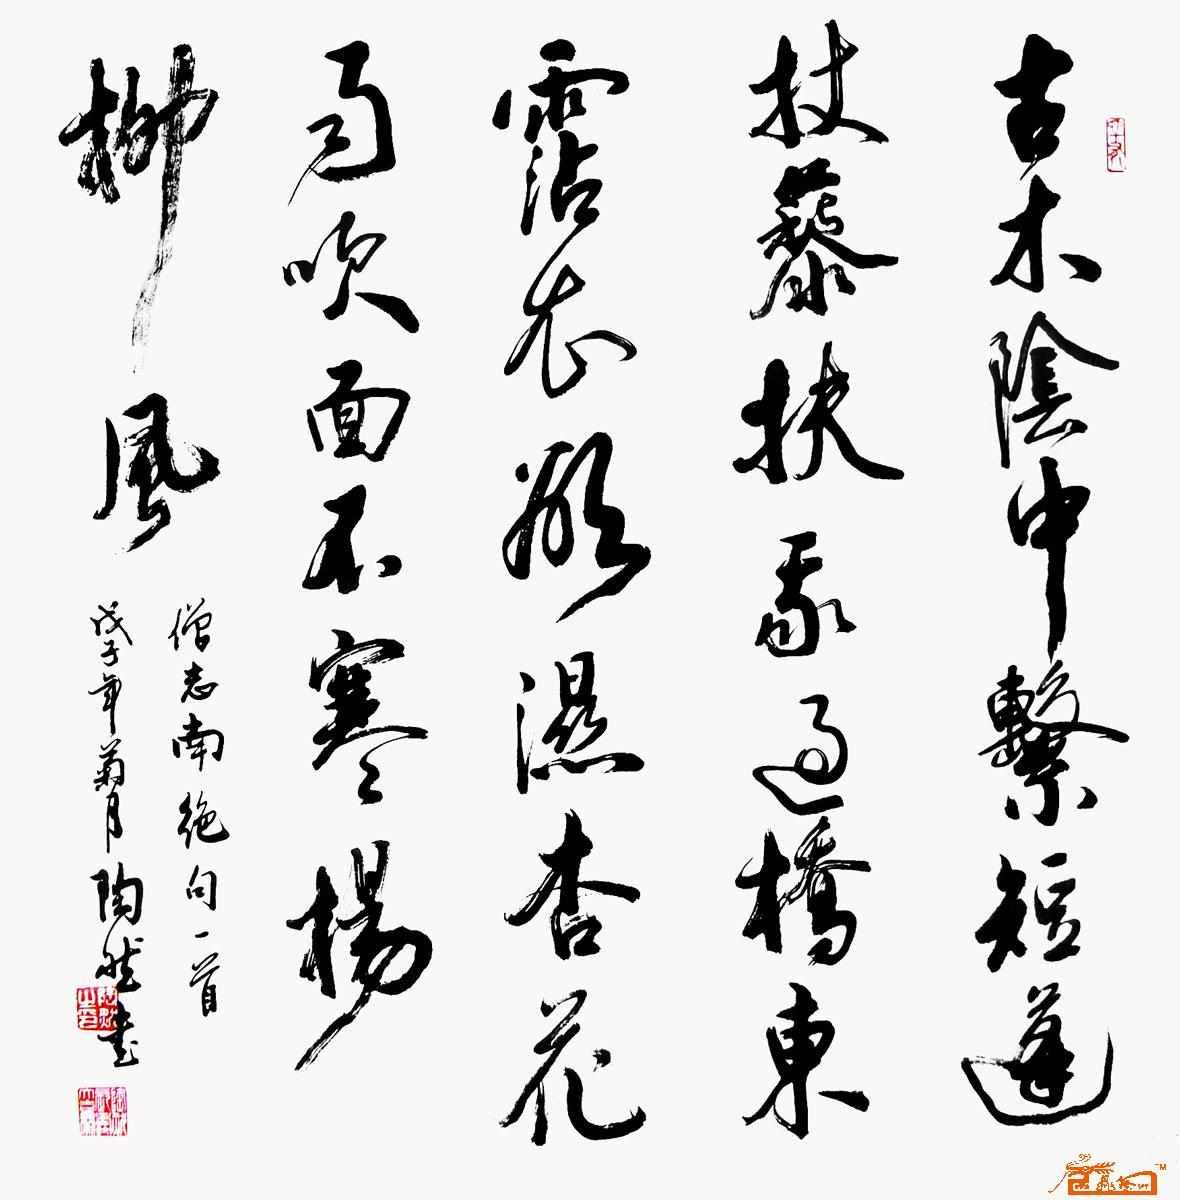 古木陰中繫短蓬
杖藜扶我過橋東
霑衣欲濕杏花
雨吹面不寒楊
柳風
僧志南絕句一首
戊子年菊月陶然書